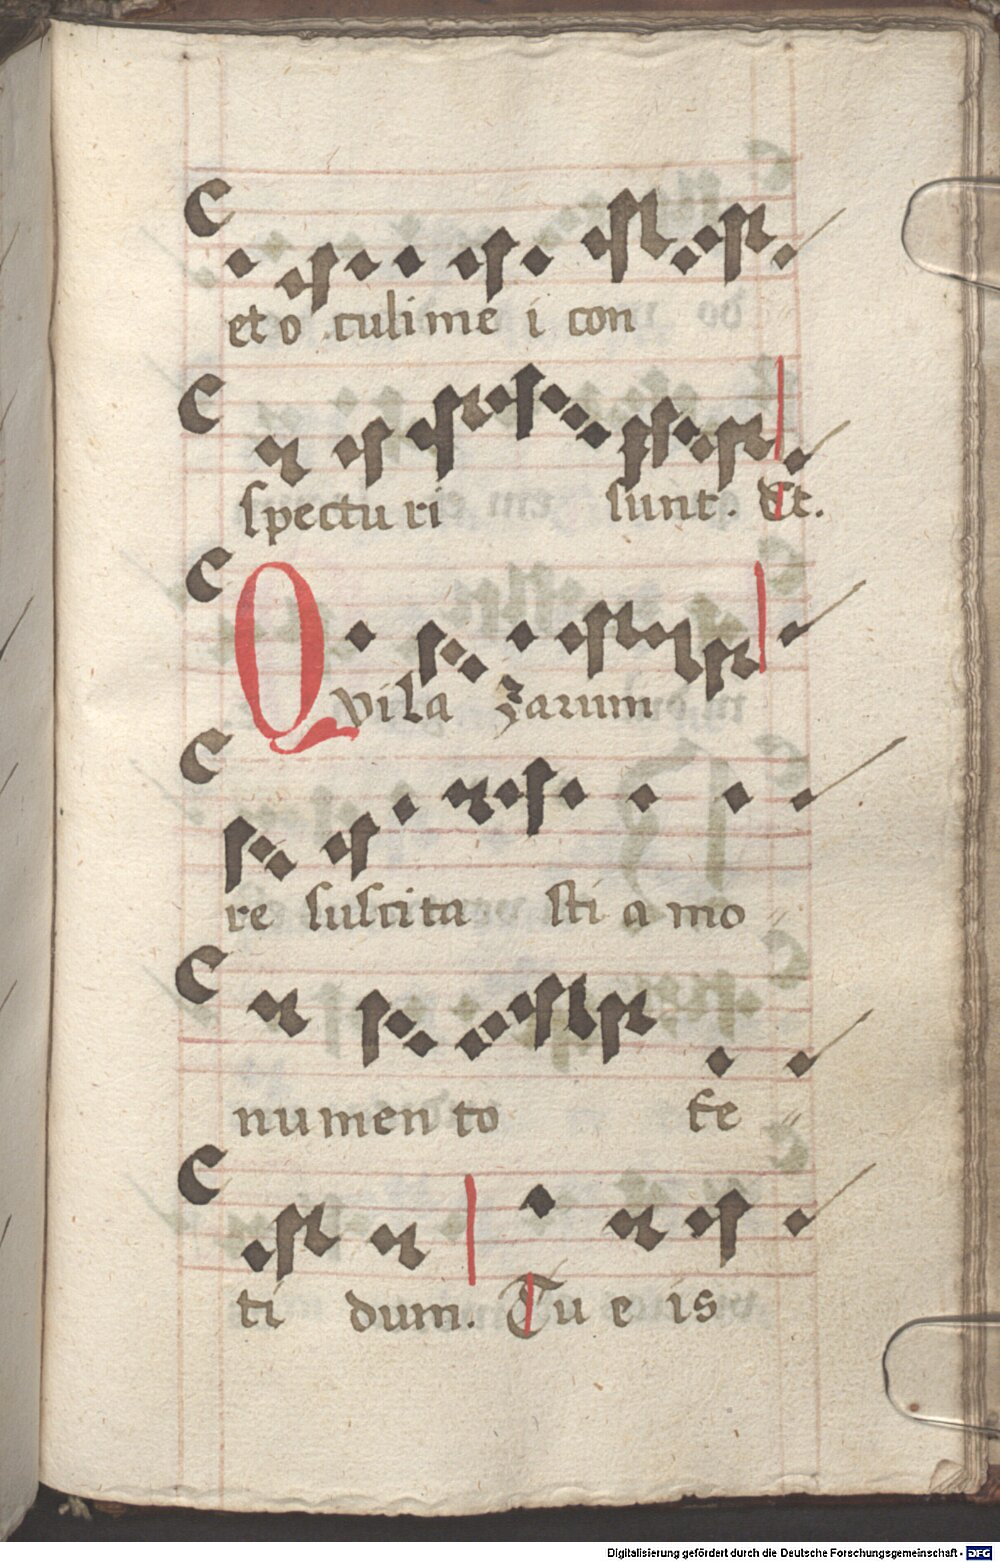 et o culi me i con
spectu ri sunt. Et.
Qui la zarum
re susci ta sti a mo
nu men to fe
ti dum. Tu e is
Digitalisierung gefördert durch die Deutsche Forschungsgemeinschaft - DFG